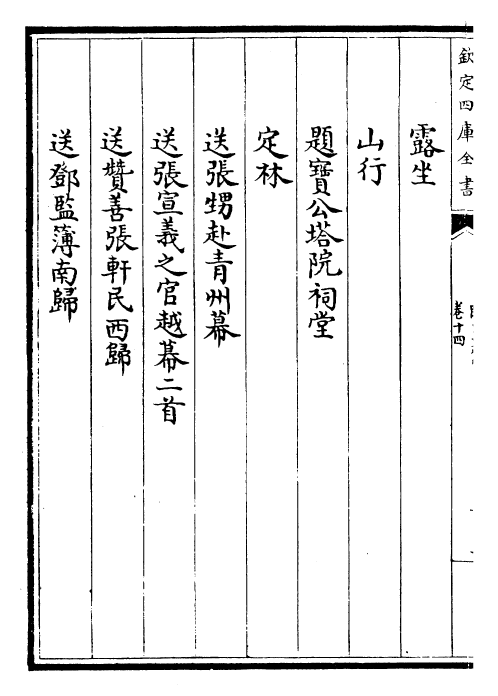 欽定四庫全書
卷十四
露坐
山行
題寶公塔院祠堂
定林
送張甥赴青州幕
送張宣義之官越幕二首
送贊善張軒民西歸
送鄧監簿南歸